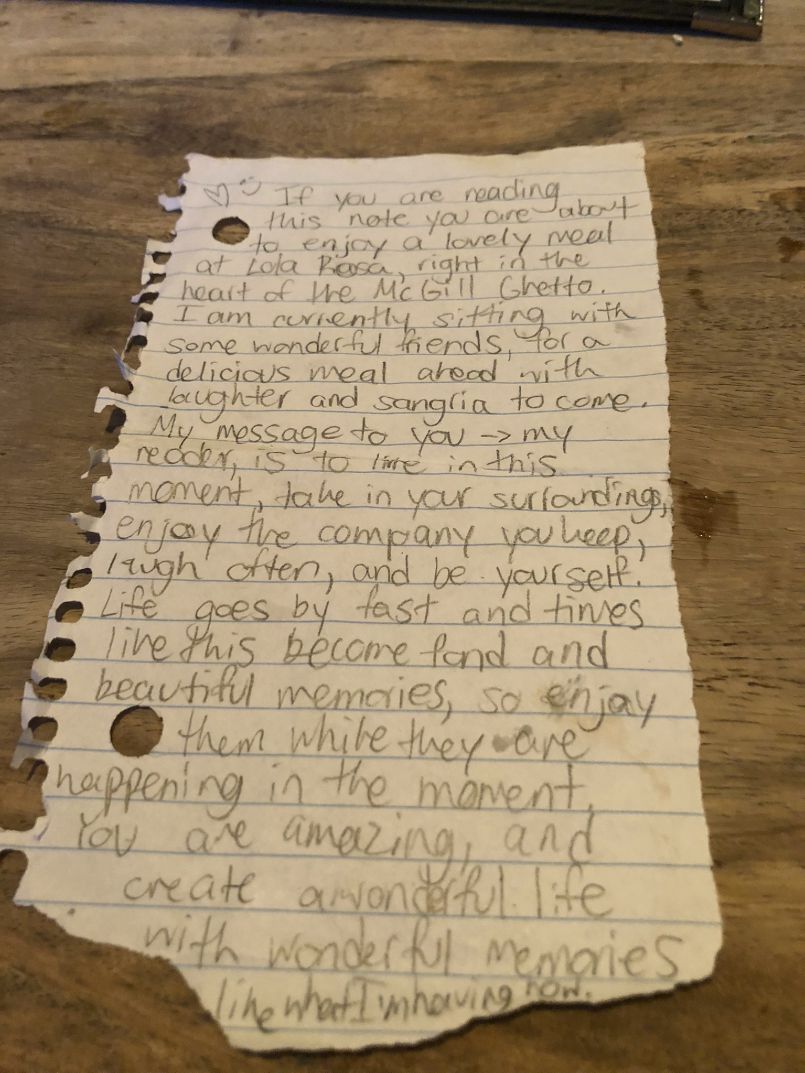 If you are reading
this note you are about
to enjoy a lovely meal
at Lola Rosa, right in the
heart of the McGill Ghetto.
I am currently sitting with
some wonderful friends, for a
delicious meal ahead with
laughter and sangria to come.
My message to you -> my
reader, is to live in this
moment, take in your surroundings,
enjoy the company you keep,
laugh often, and be yourself.
Life goes by fast and times
like this become fond and
beautiful memories, so enjoy
them while they are
happening in the moment.
You are amazing, and
create a wonderful life
with wonderful memories
like what I'm having now.